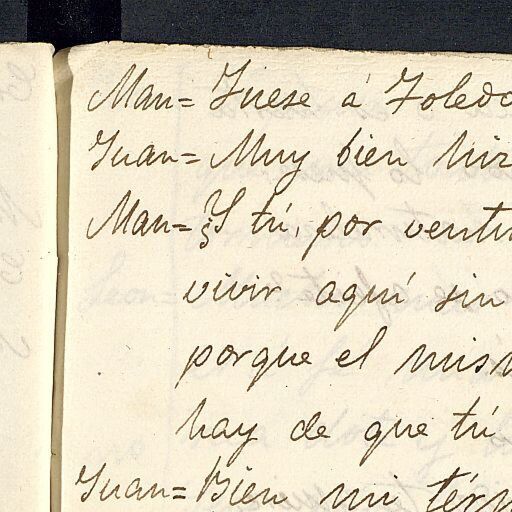 Man= Fuese á Toledo
Juan= Muy bien hiz
Man= ¿Y tú, por ventu
vivir aquí sin
porque el mism
hay de que tú
Juan= Bien mi térm